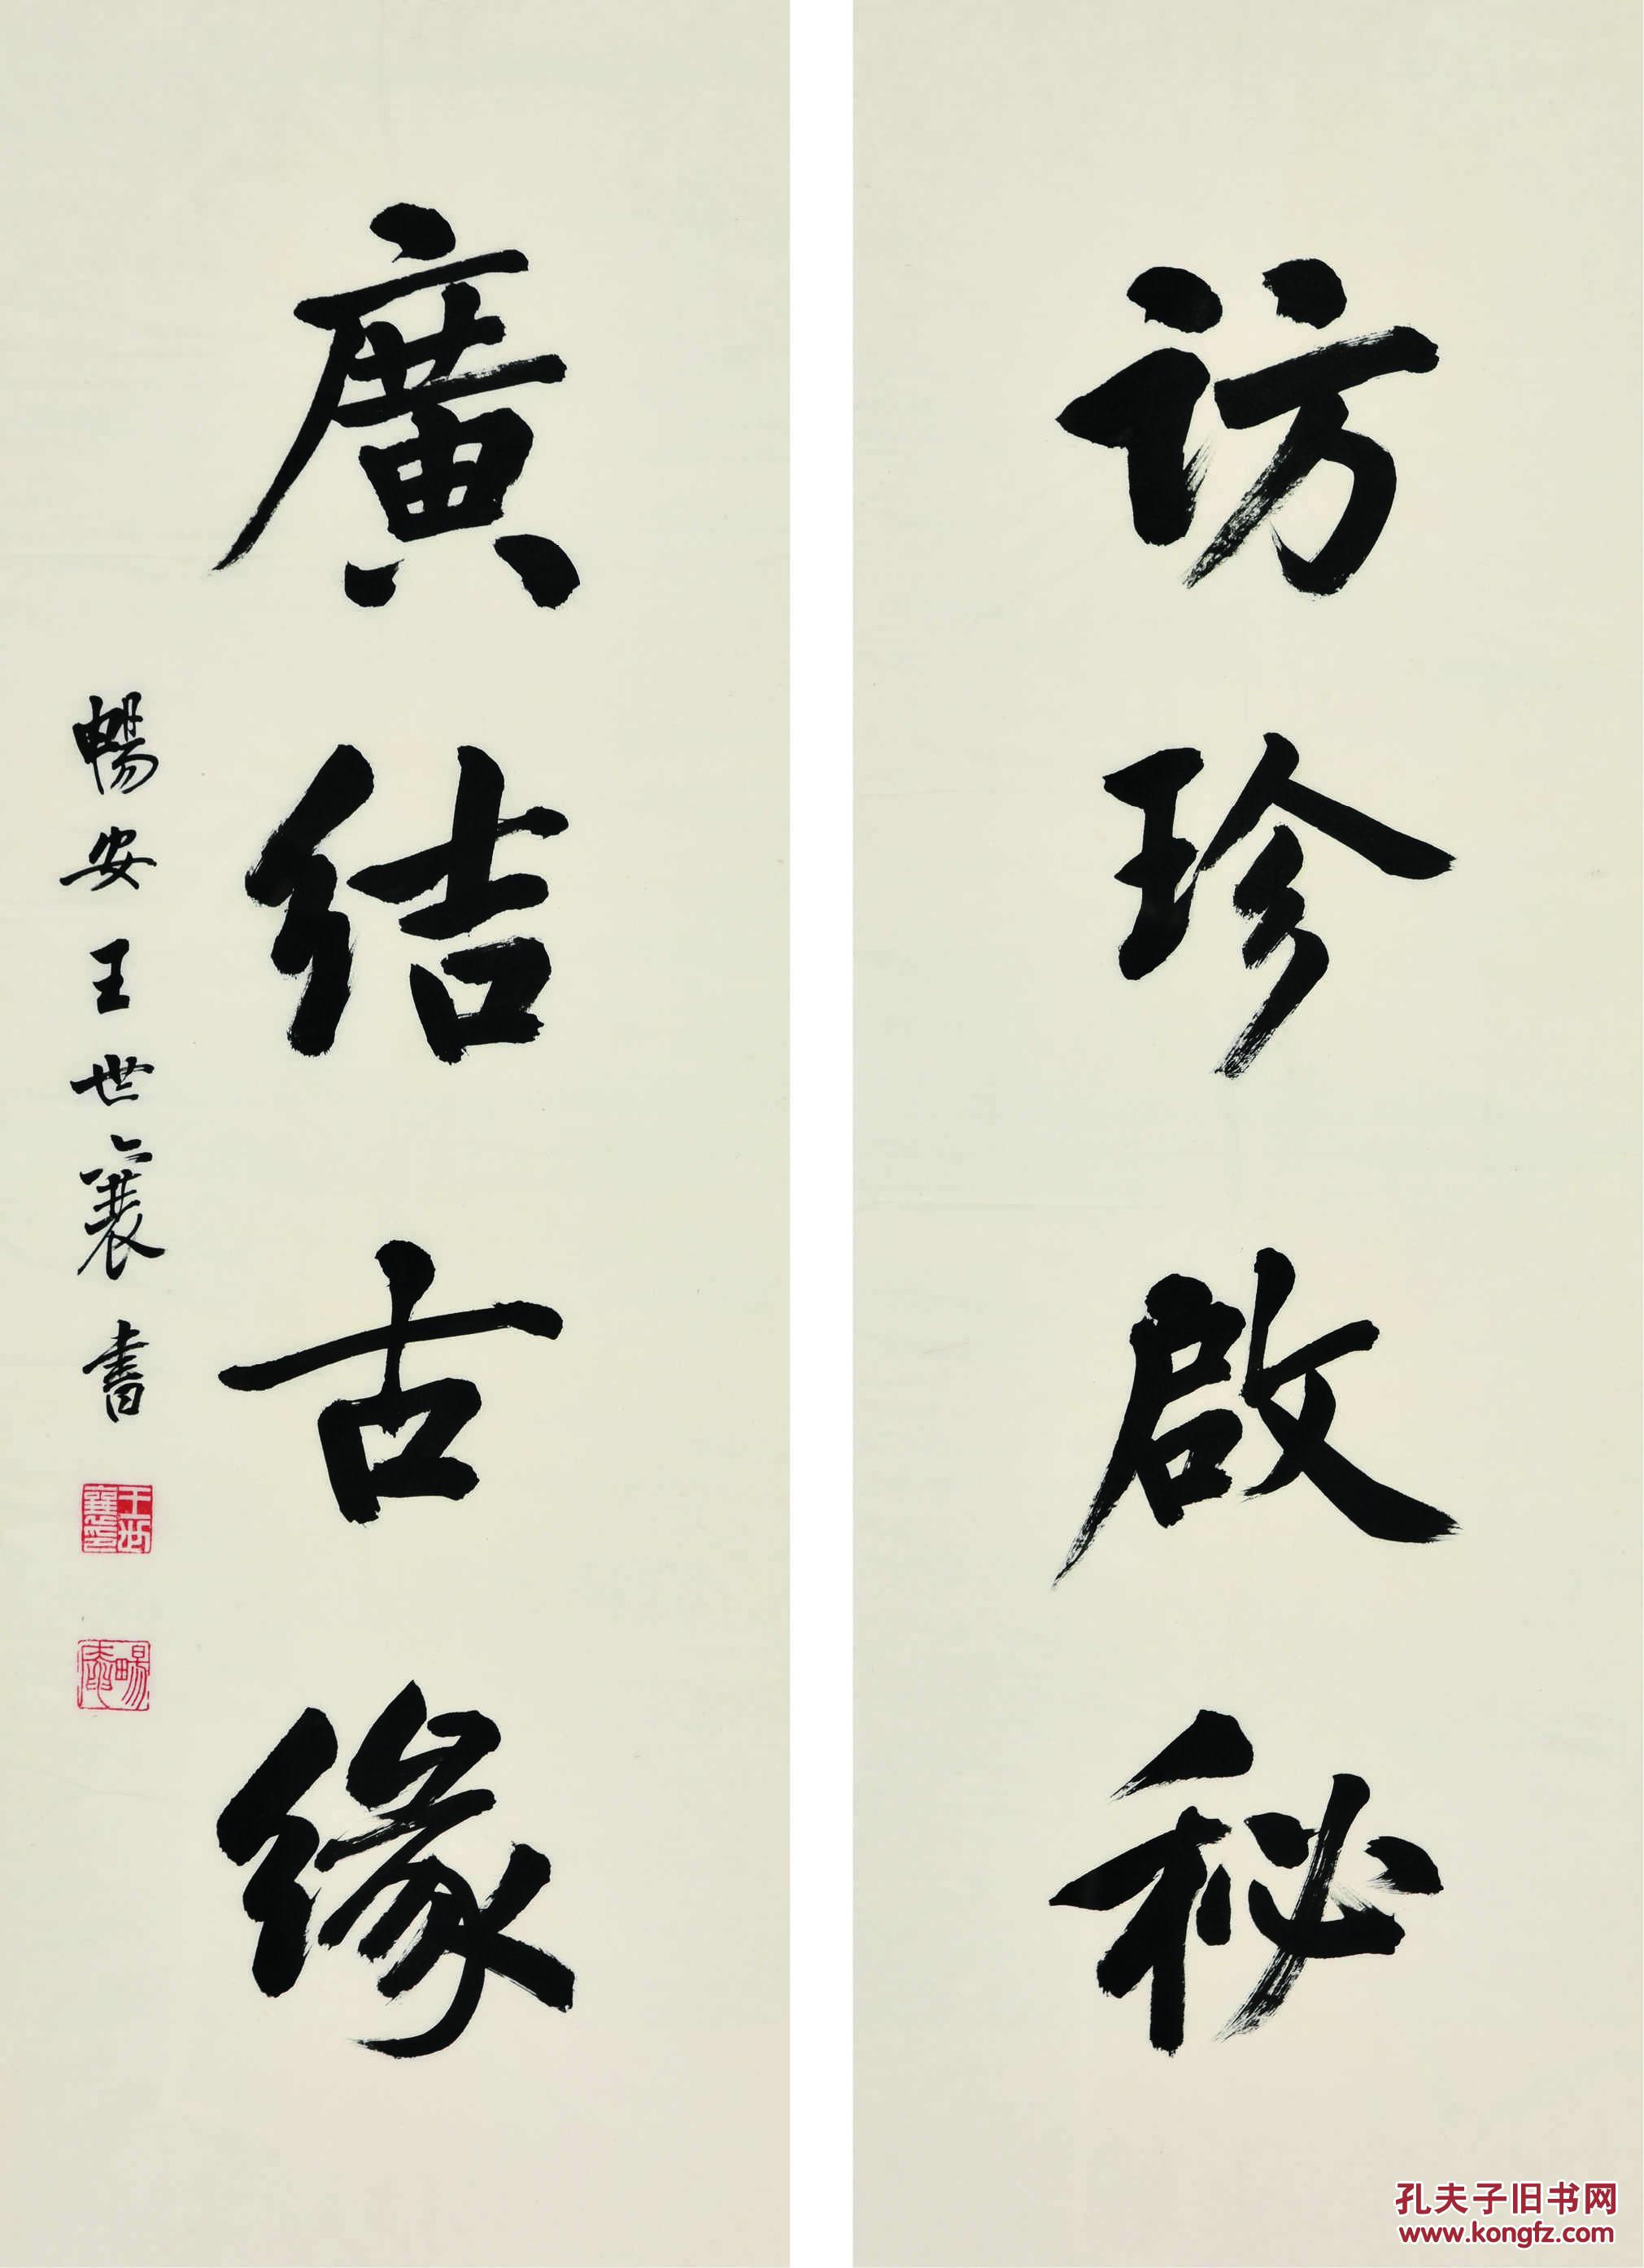 訪珍啟秘
廣結古緣
暢安王世襄書
王世襄印
暢安
孔夫子旧书网
www.kongfz.com